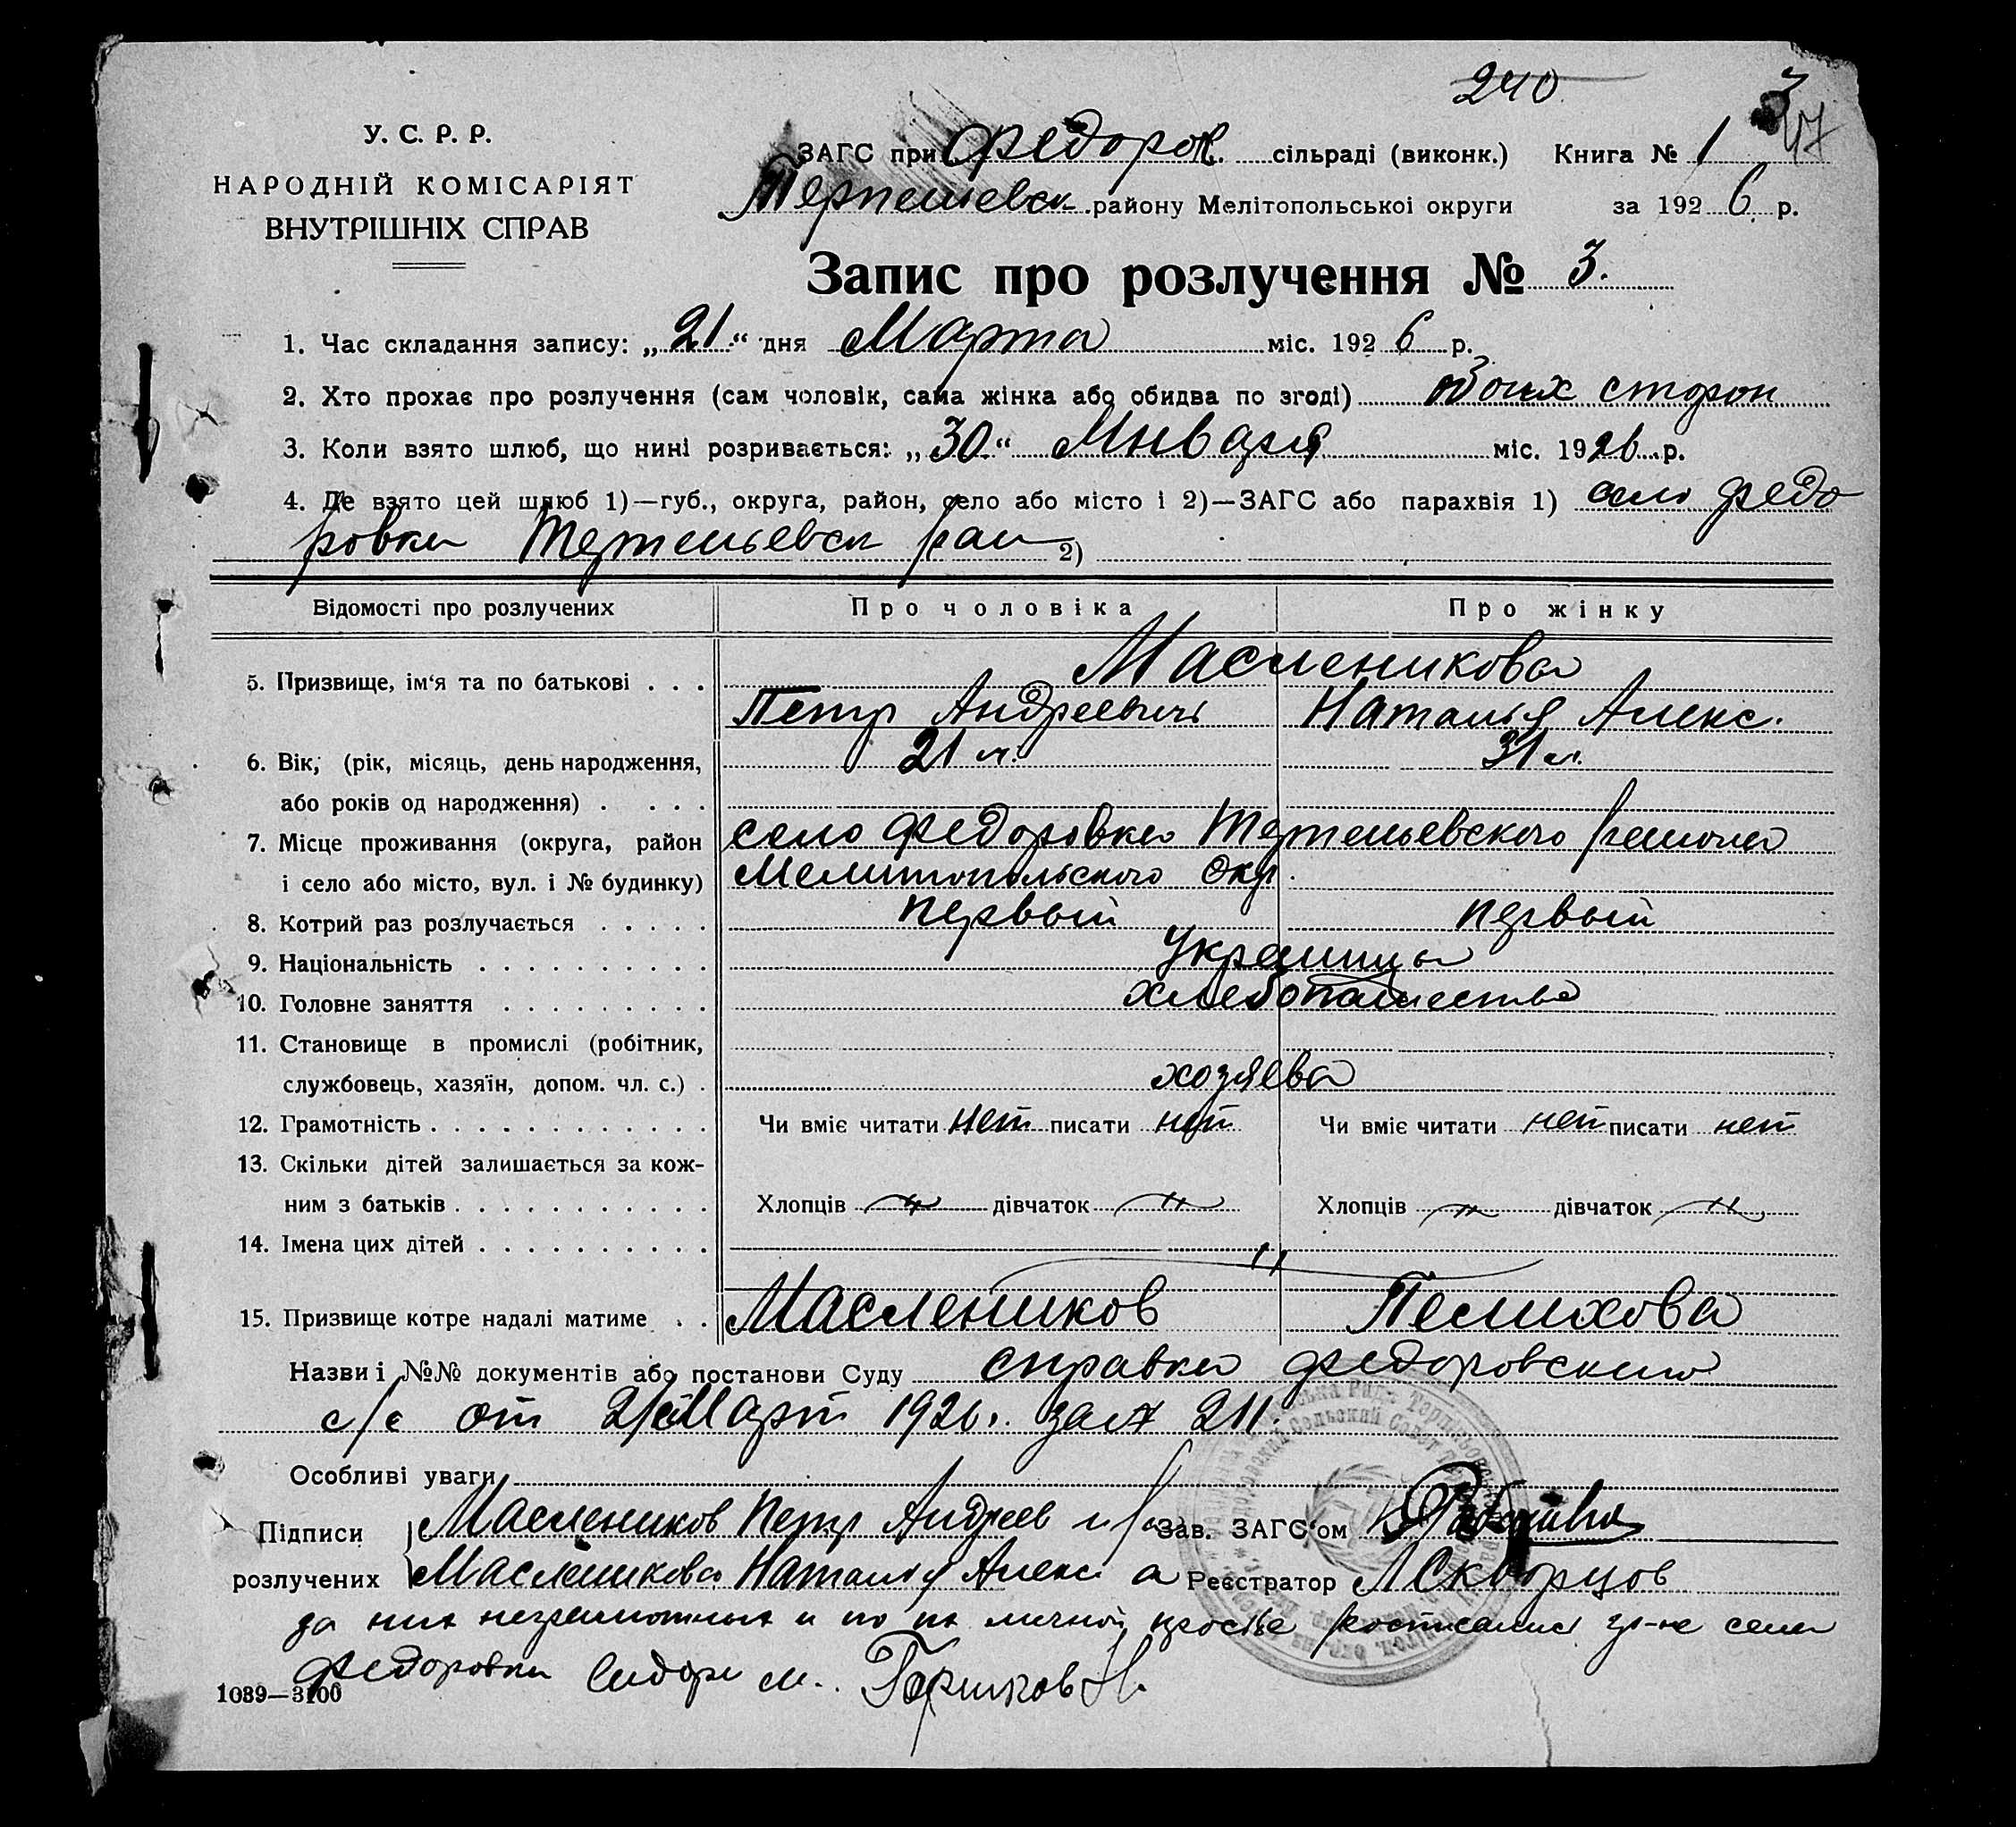 240
3
47
У. С. Р. Р.
НАРОДНІЙ КОМІСАРІЯТ
ВНУТРІШНІХ СПРАВ
ЗАГС при Федоров. сільраді (виконк.) Книга № 1
Терпеньевск. району Мелітопольської округи за 1926 р.
Запис про розлучення № 3.
1. Час складання запису: „21“ дня Марта міс. 1926 р.
2. Хто прохає про розлучення (сам чоловік, сама жінка або обидва по згоді) обоих сторон
3. Коли взято шлюб, що нині розривається: „30“ Января міс. 1926 р.
4. Де взято цей шлюб 1)—губ., округа, район, село або місто і 2)—ЗАГС або парахвія 1) село Федо
ровка Терпеньевск рай 2)
Відомості про розлучених Про чоловіка Про жінку
5. Призвище, ім‘я та по батькові . . . Маслениковы
Петр Андреевич Наталья Алекс.
6. Вік, (рік, місяць, день народження, 21 л. 31 л.
або років од народження) . . . .
7. Місце проживання (округа, район село Федоровка Терпеньевского района
і село або місто, вул. і № будинку) Мелитопольского Окр.
8. Котрий раз розлучається . . . . . первый первый
9. Національність . . . . . . . . . . Украинцы
10. Головне заняття . . . . . . . . . хлебопашество
11. Становище в промислі (робітник,
службовець, хазяїн, допом. чл. с.) . хозяева
12. Грамотність . . . . . . . . . . . . Чи вміє читати нет писати нет Чи вміє читати нет писати нет
13. Скільки дітей залишається за кож-
ним з батьків . . . . . . . . . . . Хлопців — " — дівчаток — " — Хлопців — " — дівчаток — " —
14. Імена цих дітей . . . . . . . . . . "
15. Призвище котре надалі матиме . . Маслеников Пелихова
Назви і №№ документів або постанови Суду справка Федоровского
с/с от 21 Март 1926 г. за № 211.
Особливі уваги
Підписи Маслеников Петр Андреев Зав. ЗАГС‘ом
розлучених Масленикова Наталия Алекс а Реєстратор Скворцов
за них неграмотных и по их личной просьбе росписался гр-не села
Федоровки Сидор М. Горшков Н.
1089—3100